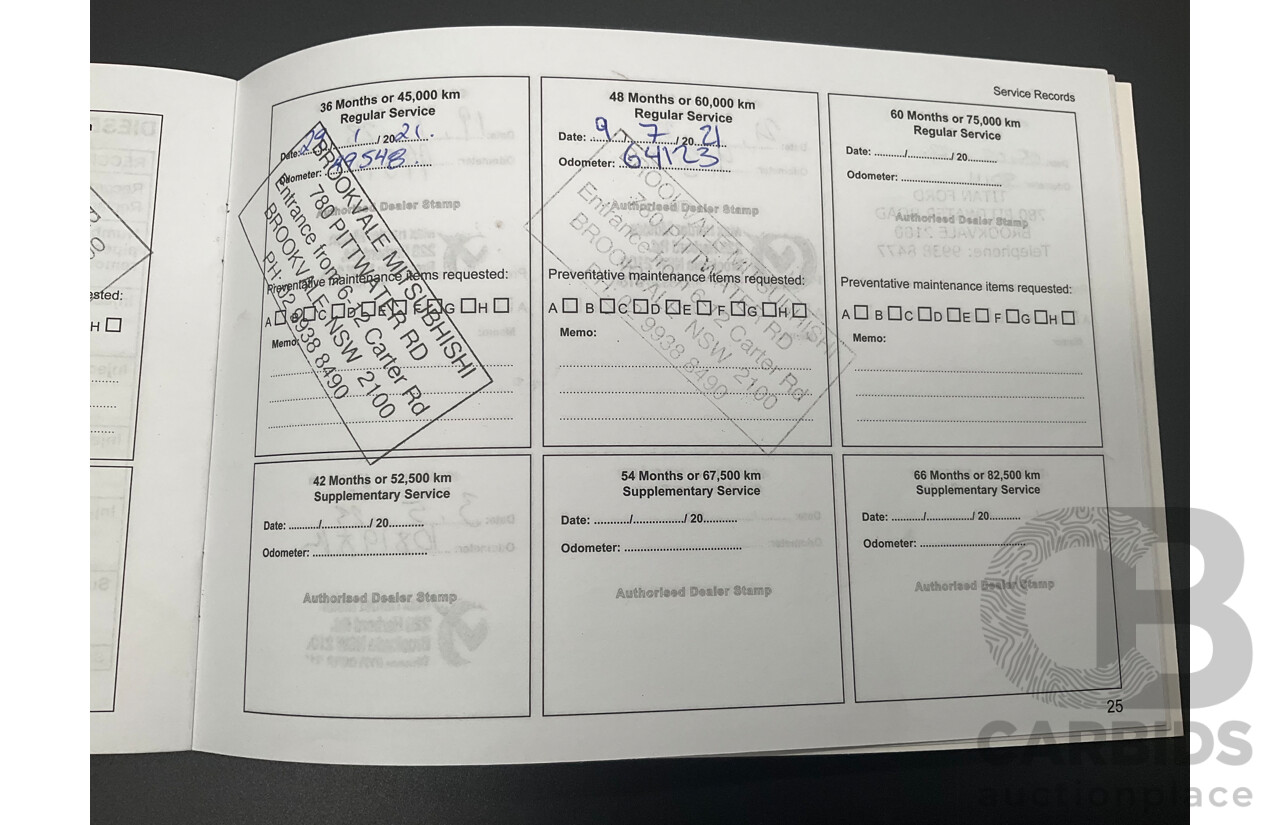 Service Records
36 Months or 45,000 km
Regular Service
Date: 29 / 1 / 2021.
Odometer: 49548.
Authorised Dealer Stamp
BROOKVALE MITSUBHISHI
780 PITTWATER RD
Entrance from 6-12 Carter Rd
BROOKVALE NSW 2100
PH: 02 9938 8490
Preventative maintenance items requested:
A B C D E F G H
Memo:
48 Months or 60,000 km
Regular Service
Date: 9 / 7 / 2021
Odometer: 64123
Authorised Dealer Stamp
BROOKVALE MITSUBHISHI
780 PITTWATER RD
Entrance from 6-12 Carter Rd
BROOKVALE NSW 2100
PH: 02 9938 8490
Preventative maintenance items requested:
A B C D E F G H
Memo:
60 Months or 75,000 km
Regular Service
Date: ........../.............../ 20..........
Odometer: ..................................
Authorised Dealer Stamp
Preventative maintenance items requested:
A B C D E F G H
Memo:
42 Months or 52,500 km
Supplementary Service
Date: ........../................/ 20...........
Odometer: ......................................
Authorised Dealer Stamp
54 Months or 67,500 km
Supplementary Service
Date: ............/................/ 20...........
Odometer: .......................................
Authorised Dealer Stamp
66 Months or 82,500 km
Supplementary Service
Date: .........../.............../ 20..........
Odometer: ...................................
Authorised Dealer Stamp
25
sted:
H
CARBIDS
auctionplace